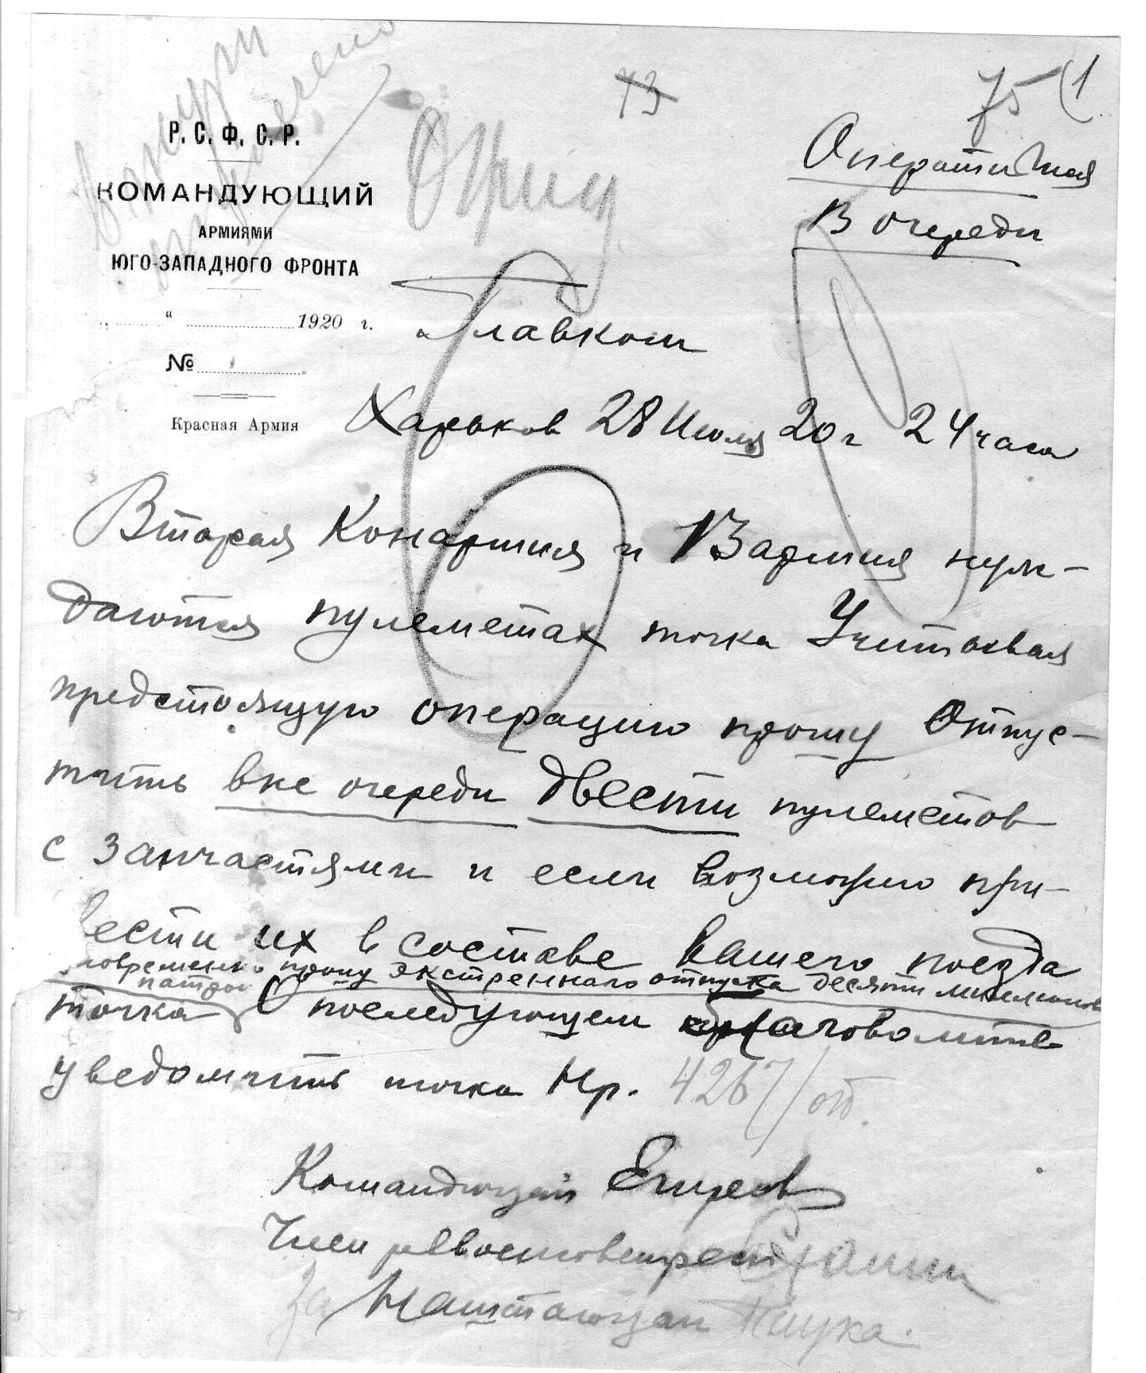 73
75 (1
Р. С. Ф. С. Р.
КОМАНДУЮЩИЙ
АРМИЯМИ
ЮГО-ЗАПАДНОГО ФРОНТА
„ “ 1920 г.
№
Красная Армия
Оперативная
В очереди
Главком
Харьков 28 Июля 20 г 24 часа
Вторая Конармия и 13 армия нуж-
даются пулеметах точка Учитывая
предстоящую операцию прошу Отпус-
тить вне очереди двести пулеметов
с запчастями и если возможно при-
вести их в составе вашего поезда
прошу экстренного отпуска десяти миллионов
патрон
точка О последующем благоволите
уведомить точка Нр. 4267/оп.
Командующий Егоров
Член реввоенсовета Сталин
За Наштаюзап Паука.